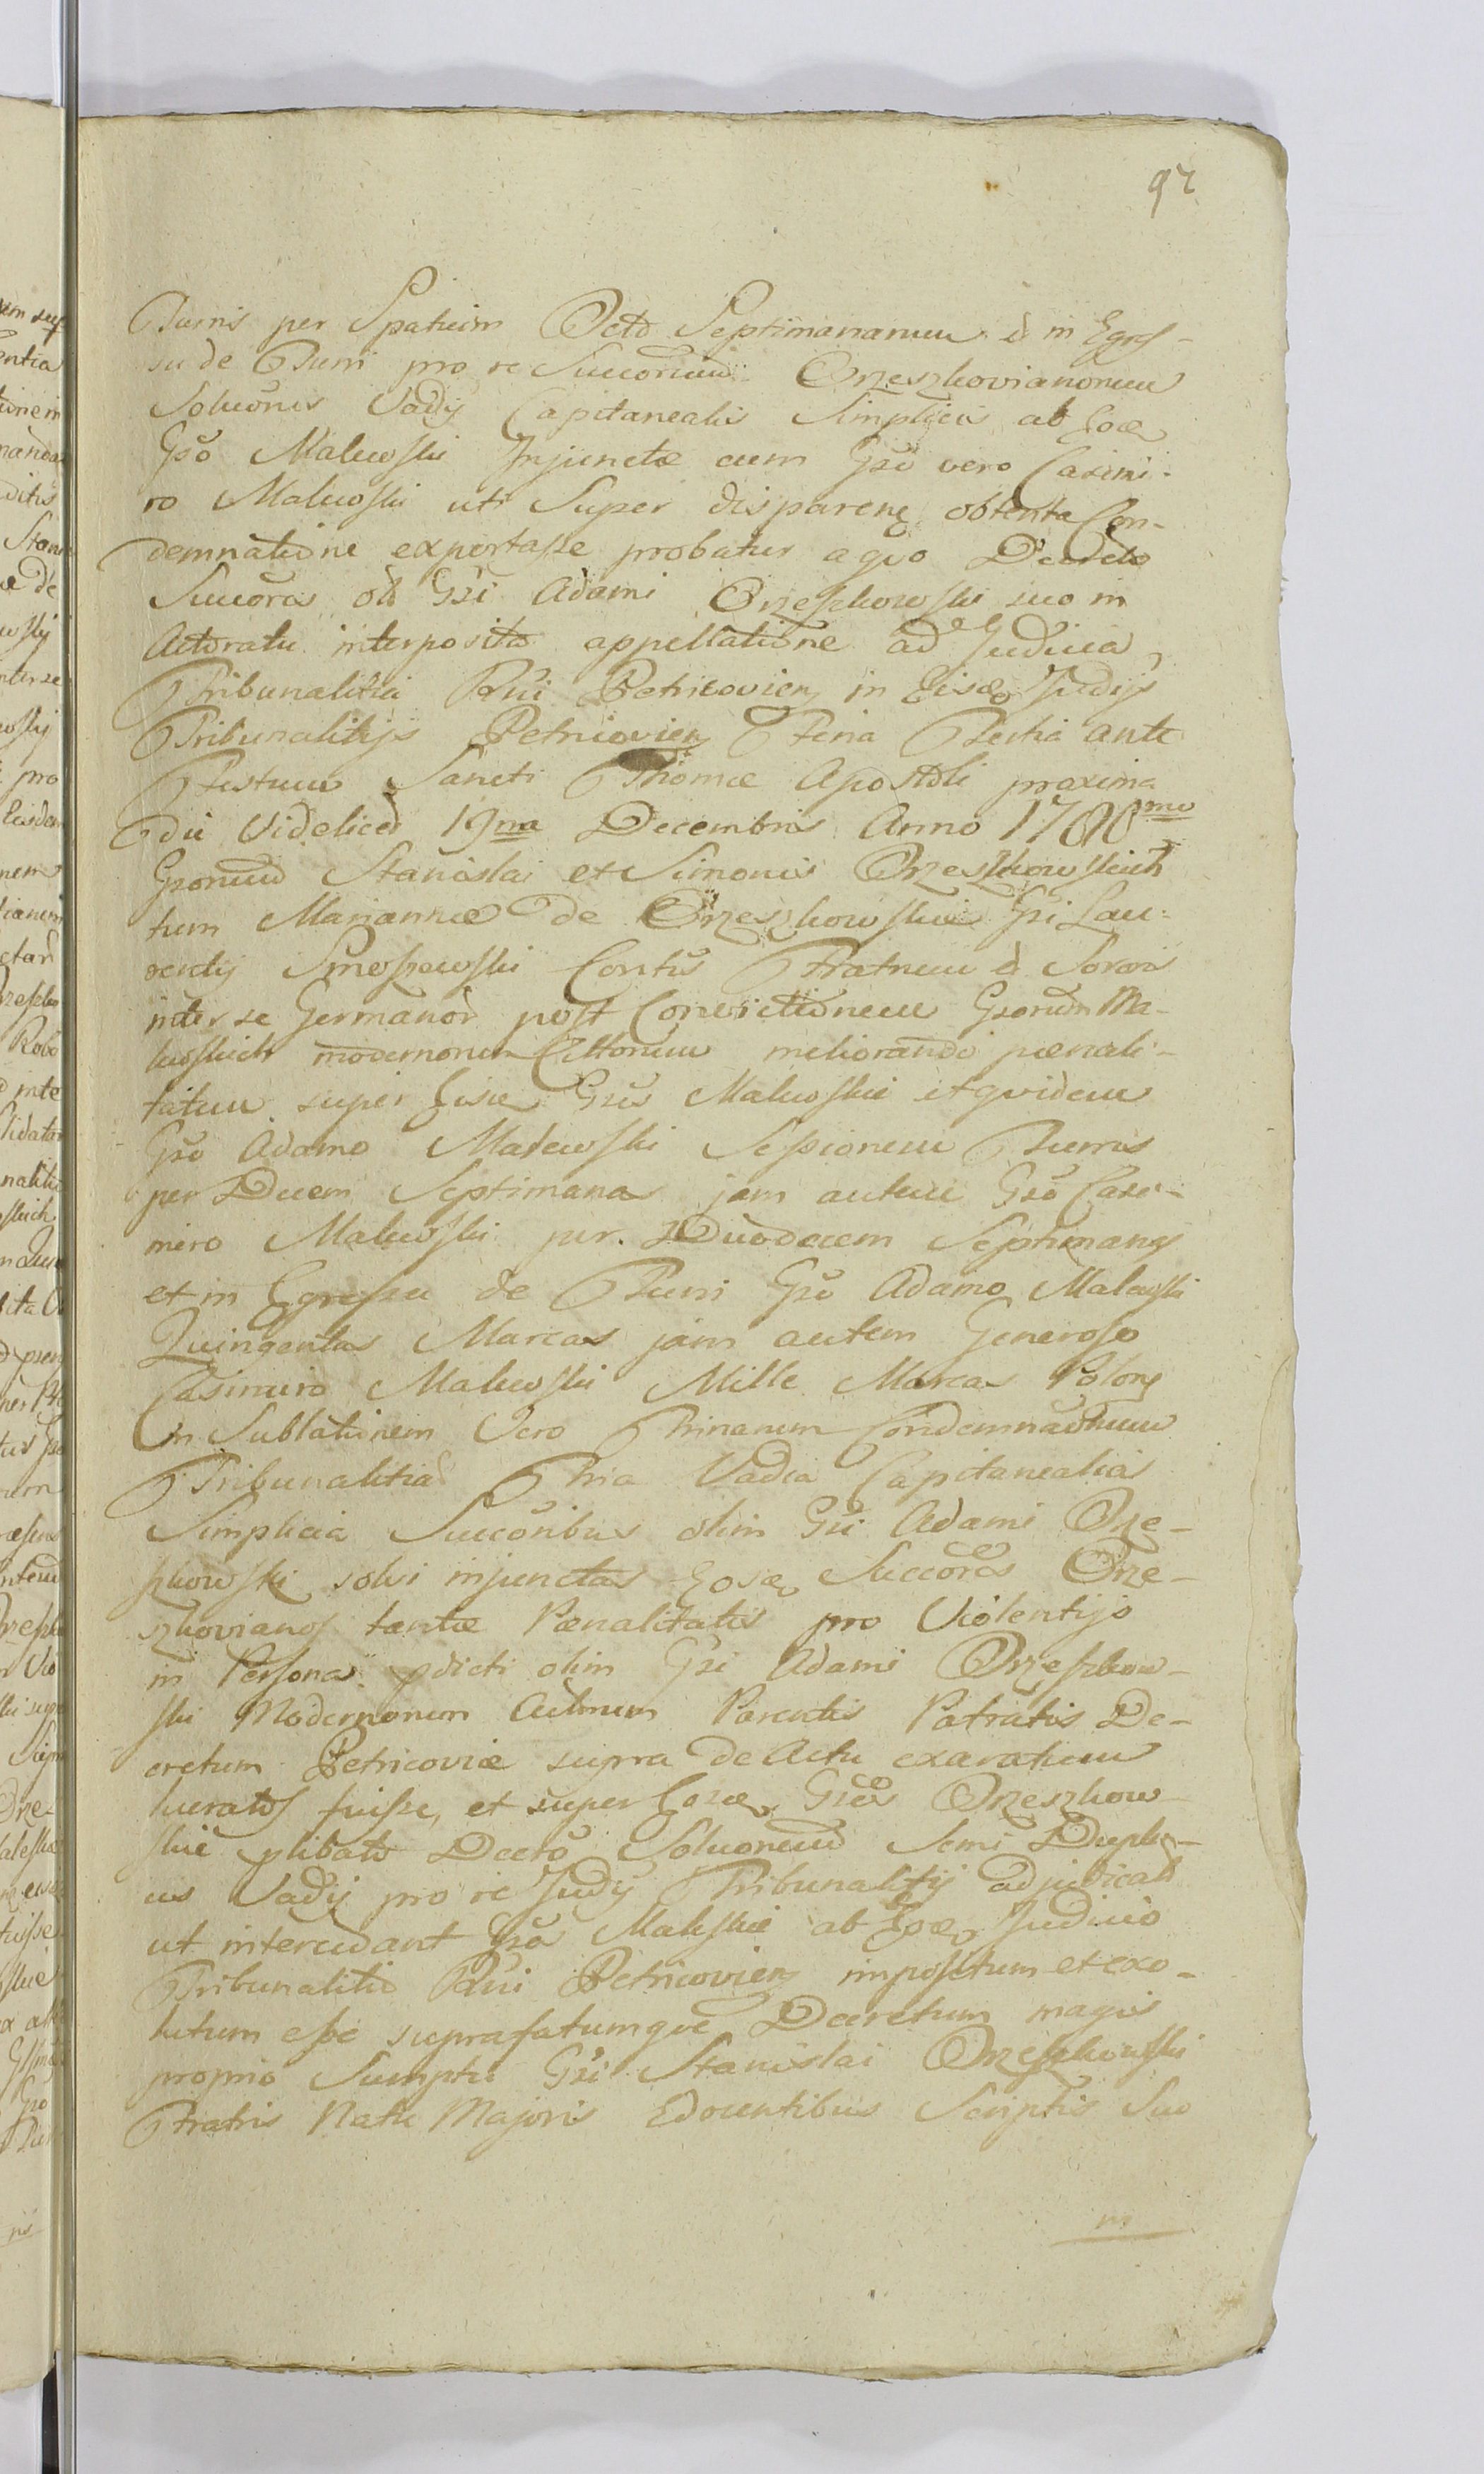 97
Turris per Spatium Octo Septimanarum & in Egres-
su de Turri pro re Succorum Orzeszkovianorum
Soluonis Vadij Capitanealis Simplicis ab Eoq
Gso Malewski Injunctæ cum Gso vero Casimi-
ro Malewski uti Super disparenꝫ obtenta Con-
demnatione exportasse probatur a quo Decreto
Succores ol. Gsi Adami Orzeszkowski suo in
Actoratu interposita appellatione ad Judicia
Tribunalitia Rni Petricovienꝫ in Eisq Judijs
Tribunalitijs Petricovienꝫ Feria Tertia ante
Festum Sancti Thomæ Apostoli proxima
die Videlicet 19na Decembris Anno 1780mo
Gsorum Stanislai et Simonis Orzeszkowskich
tum Mariannæ de Orzeszkowskie Gsi Lau-
rentij Smoszewski Contis Fratrum & Soror
inter se Germanor post Convictionem Gsorum Ma-
lewskich modernorum Cittorum meliorando pænali-
tatum super Eisq Gsis Malewskie et quidem
Gso Adamo Malewski Sessionem Turris
per Decem Septimanas jam autem Gso Casi-
miro Malewski per Duodecem Septimanas
et in Egressu de Turri Gso Adamo Malewski
Quingentas Marcas jam autem Generoso
Casimiro Malewski Mille Marcas Polonꝫ
In Sublationem Vero Trinarum Condemnaonum
Tribunalitias Tria Vadia Capitanealia
Simplicia Succoribus olim Gsi Adami Orze-
szkowski solvi injunctas Eosq Succores Orze-
szkovianos tantæ Pænalitatis pro Violentijs
in Persona pdicti olim Gsi Adami Orzeszkow-
ski Modernorum Actorum Parentis Patratis De-
cretum Petricoviæ supra de Actu exaratum
lucratos fuisse, et super Eosq Gsos Orzeszkow-
skie plibato Decro Soluonem Semi Dupli-
cis Vadij pro re Judij Tribunalitij adjudicat
ut intercedant Gsos Maleskie ab Eoq Judicio
Tribunalitio Rni Petricovienꝫ impositum et exo-
lutum esse suprafatumque Decretum magis
proprio Sumptu Gsi Stanislai Orzeszkowski
Fratris Natu Majoris Edocentibus Scriptis Suo
in